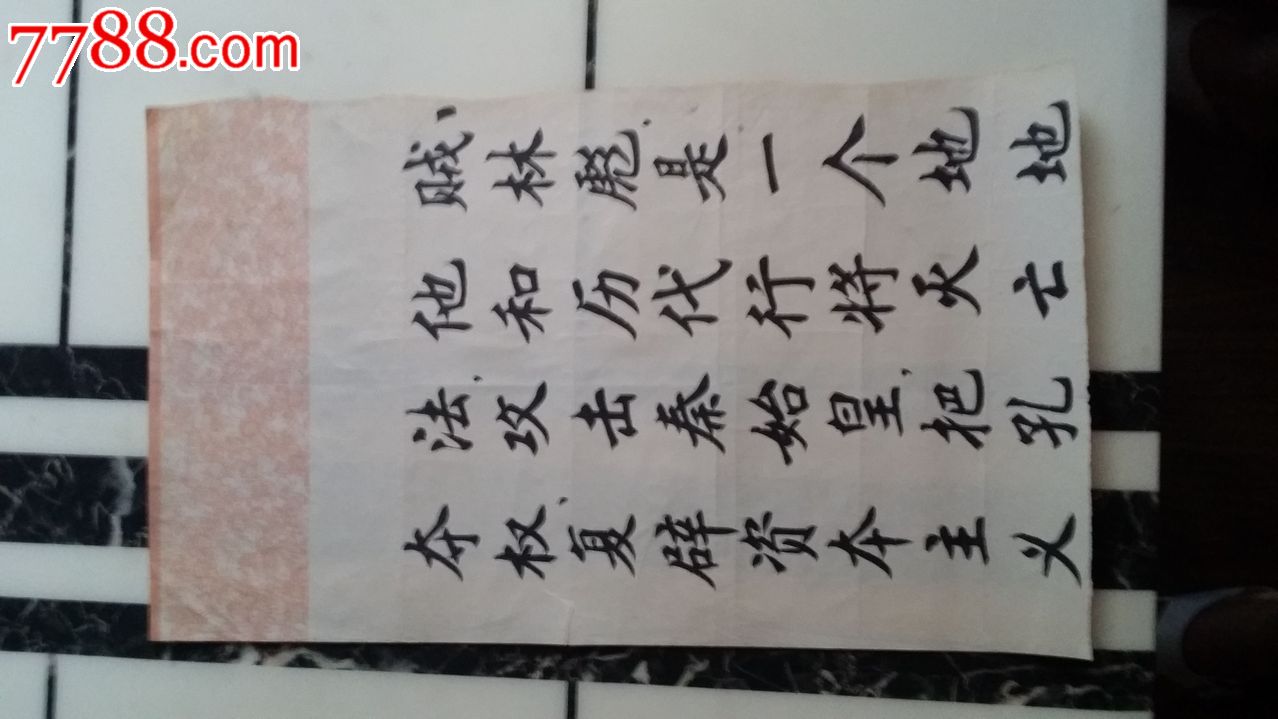 7788.com
贼、林彪、是一个地地
他和历代行将灭亡
法、攻击秦始皇、把孔
夺权、复辟资本主义